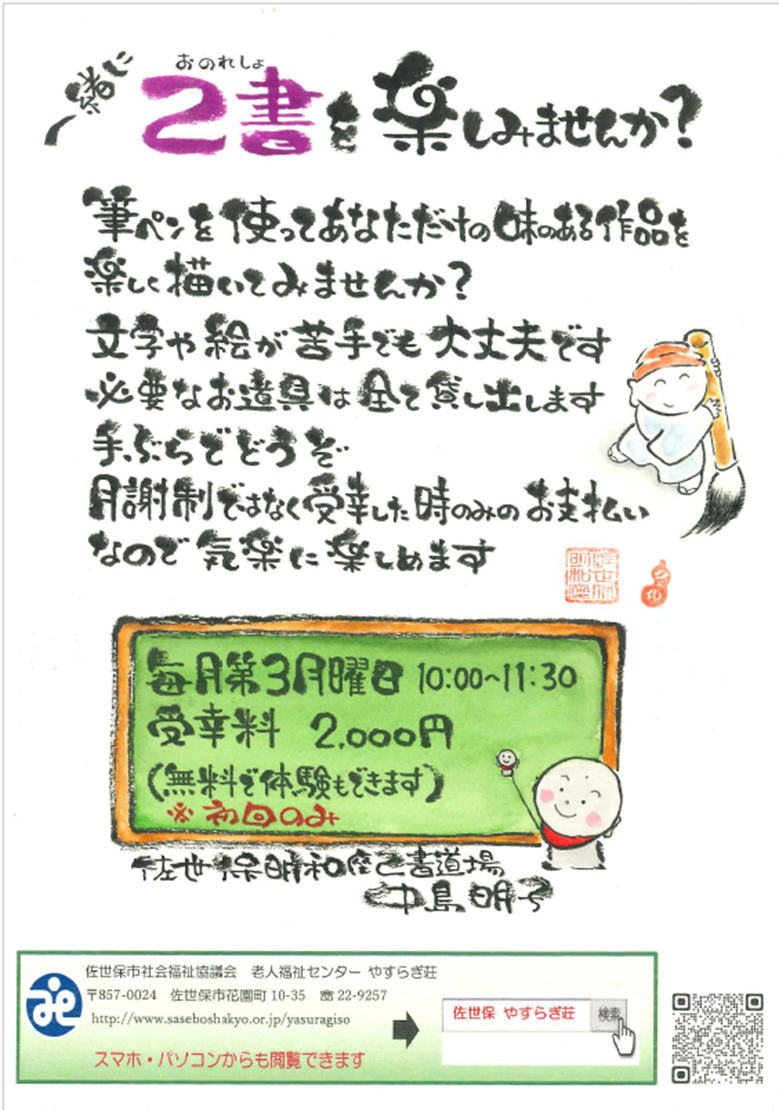 一緒に
おのれしょ
己書を楽しみませんか?
筆ペンを使ってあなただけの味のある作品を
楽しく描いてみませんか?
文字や絵が苦手でも大丈夫です
必要なお道具は全て貸し出します
手ぶらでどうぞ
月謝制ではなく受幸した時のみのお支払い
なので気楽に楽しめます
毎月第3月曜日 10:00~11:30
受幸料 2,000円
(無料で体験もできます)
※初回のみ
佐世保明和座己書道場
中島明子
佐世保市社会福祉協議会 老人福祉センター やすらぎ荘
〒857-0024 佐世保市花園町10-35 ☎22-9257
http://www.saseboshakyo.or.jp/yasuragiso
佐世保 やすらぎ荘 検索
スマホ・パソコンからも閲覧できます